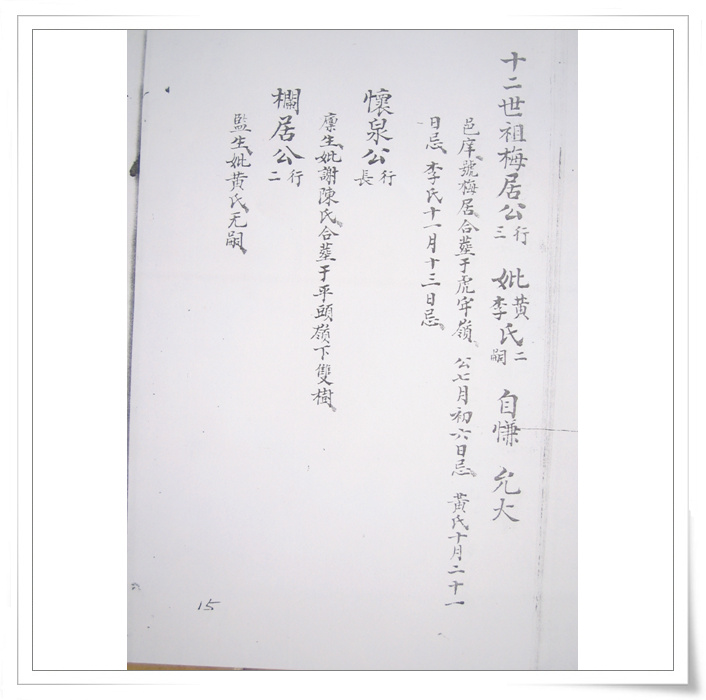 十二世祖梅居公行三 妣黃李氏二嗣 自慊 允大
邑庠號梅居合塟于虎牢嶺 公七月初六日忌 黃氏十月二十一
日忌 李氏十一月十三日忌
懷泉公行長
廩生妣謝陳氏合塟于平頭嶺下雙樹
欄居公行二
監生妣黃氏无嗣
15